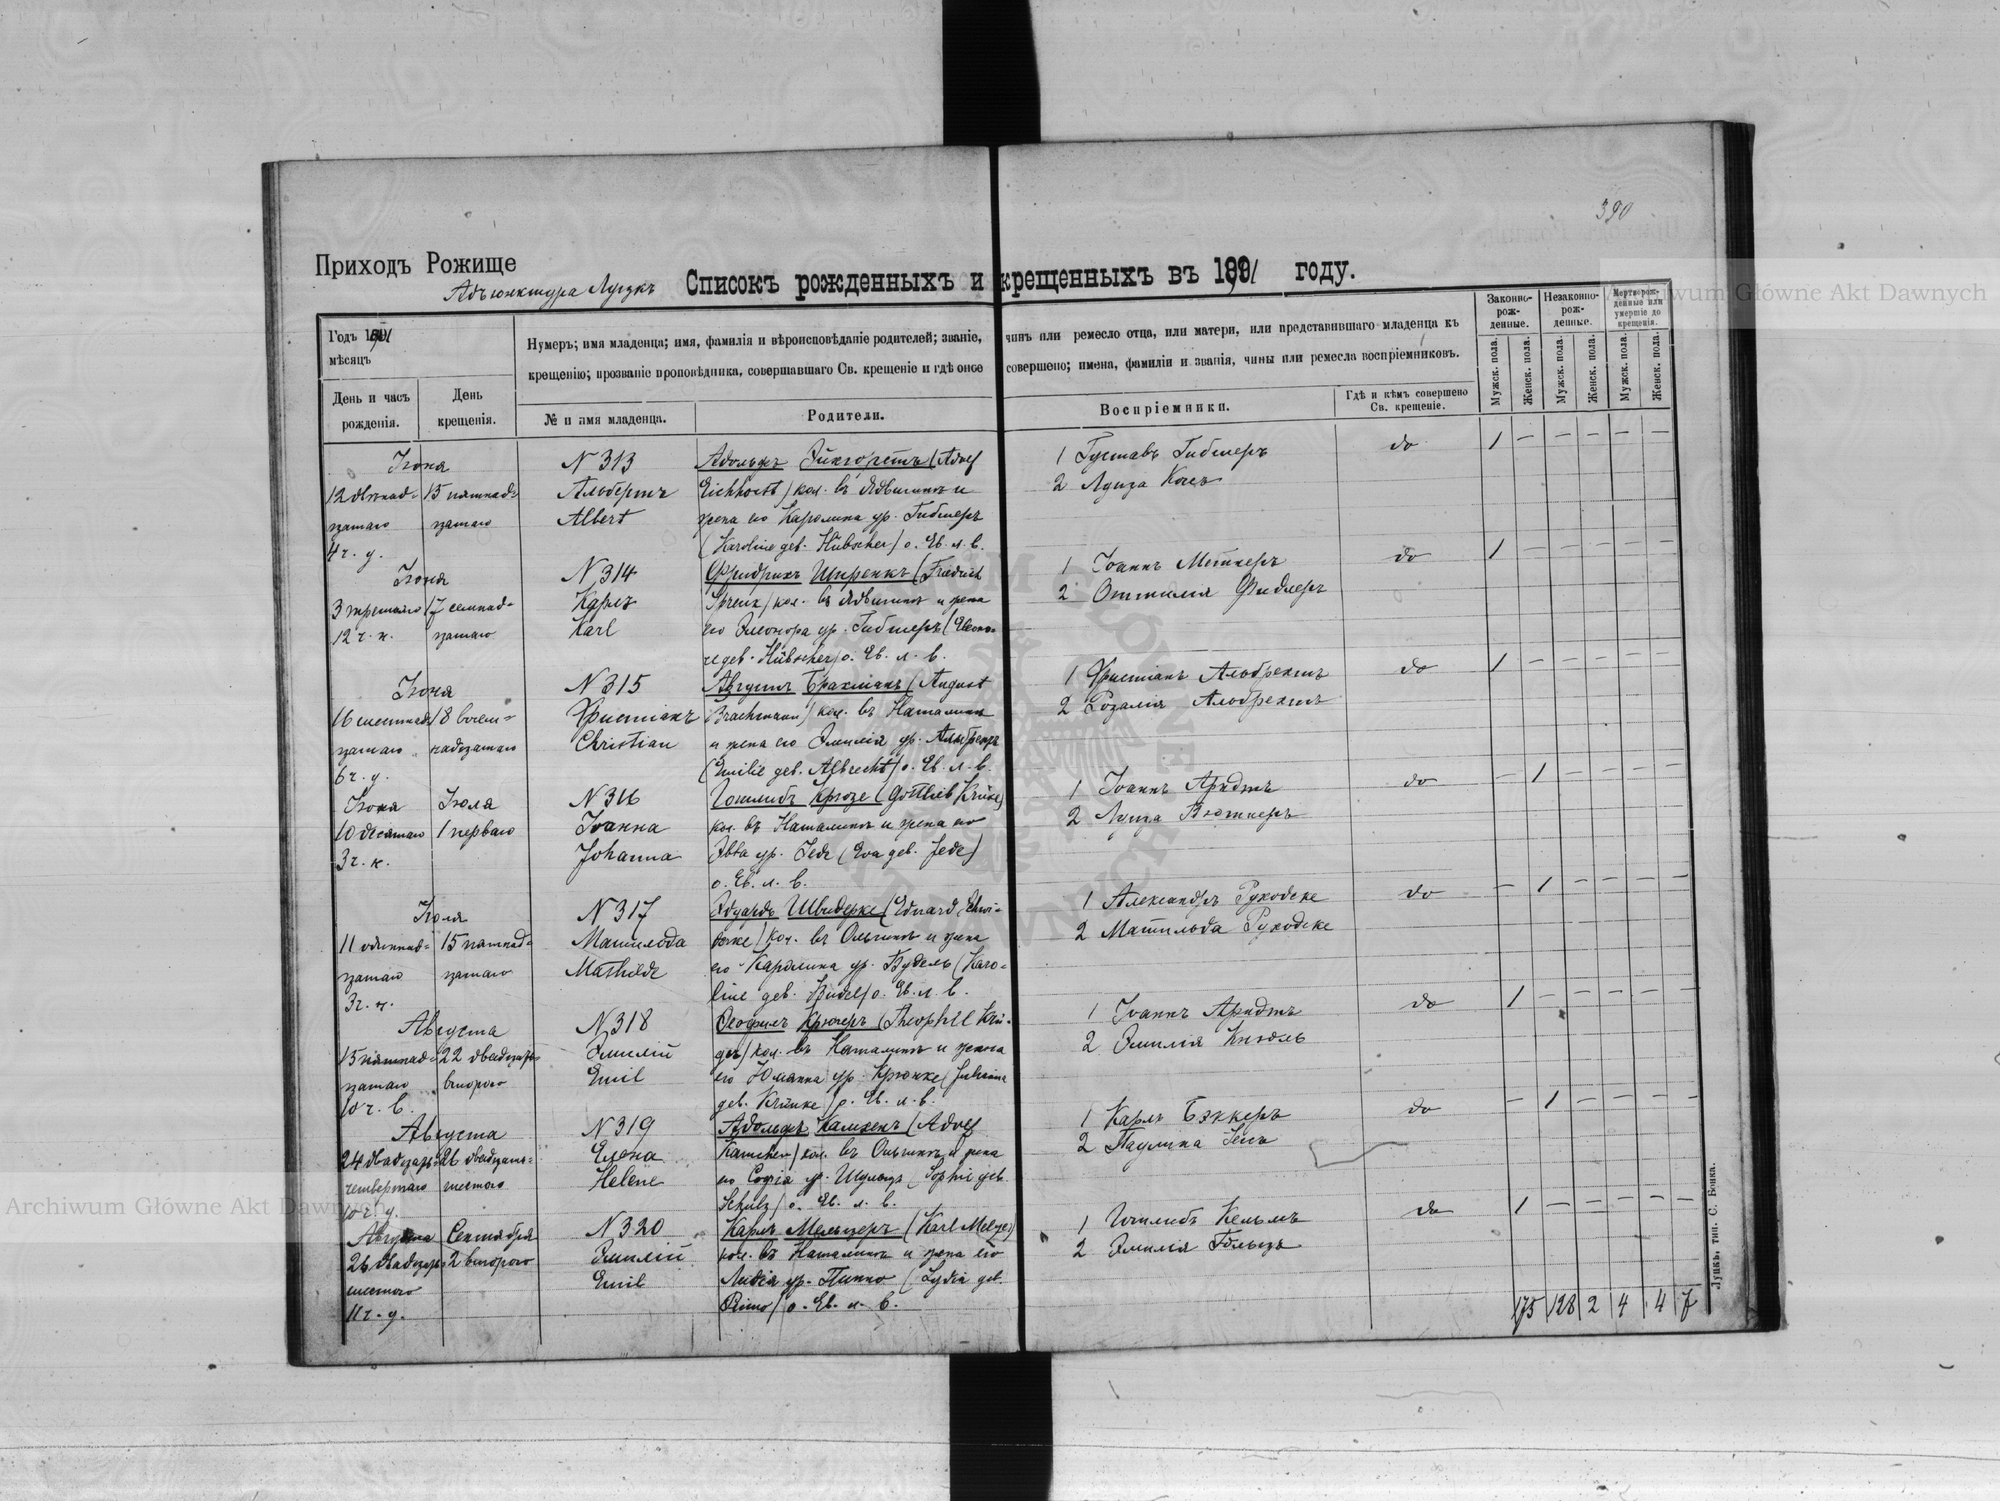 390
Приходъ Рожище
Адъюнктура Луцкъ
Списокъ рожденныхъ и крещенныхъ въ 1891 году.
Годъ 1891
мѣсяцъ
Нумеръ; имя младенца; имя, фамилія и вѣроисповѣданіе родителей; званіе, чинъ или ремесло отца, или матери, или представившаго младенца къ
крещенію; прозваніе проповѣдника, совершавшаго Св. крещеніе и гдѣ оное совершено; имена, фамиліи и званія, чины или ремесла воспріемниковъ.
День и часъ рожденія.
День крещенія.
№ и имя младенца.
Родители.
Воспріемники.
Гдѣ и кѣмъ совершено Св. крещеніе.
Законно-рож-денные.
Незаконно-рож-денные.
Мертворож-денные или умершіе до крещенія.
Мужск. пола.
Женск. пола.
Мужск. пола.
Женск. пола.
Мужск. пола.
Женск. пола.
Іюня
12 двѣнад-
цатаго
4 ч. у.
15 пятнад-
цатаго
N 313
Альбертъ
Albert
Адольфъ Эйхгорстъ (Adolf
Eichhorst) кол. въ Ядвининѣ и
жена его Каролина ур. Гибшеръ
(Karoline geb. Hübscher) о. Ев. л. в.
1 Густавъ Гибшеръ
2 Луиза Кохъ
do
1 — — — — —
Іюня
3 третьяго
12 ч. н.
17 семнад-
цатаго
N 314
Карлъ
Karl
Фридрихъ Шпренкъ (Friedrich
Sprenk) кол. въ Ядвининѣ и жена
его Элеонора ур. Гибшеръ (Eleono-
re geb. Hübscher) о. Ев. л. в.
1 Іоаннъ Метнеръ
2 Оттилія Фидлеръ
do
1 — — — — —
Іюня
16 шестнад-
цатаго
6 ч. у.
18 восем-
надцатаго
N 315
Христіанъ
Christian
Августъ Брахманъ (August
Brachmann) кол. въ Наталинѣ
и жена его Эмилія ур. Альбрехтъ
(Emilie geb. Albrecht) о. Ев. л. в.
1 Христіанъ Альбрехтъ
2 Розалія Альбрехтъ
do
1 — — — — —
Іюня
10 десятаго
3 ч. н.
Іюля
1 перваго
N 316
Іоанна
Johanna
Готлибъ Крюзе (Gottlieb Krüse)
кол. въ Наталинѣ и жена его
Эва ур. Іеде (Eva geb. Jede)
о. Ев. л. в.
1 Іоаннъ Арндтъ
2 Луиза Вютнеръ
do
— 1 — — — —
Іюля
11 одиннад-
цатаго
3 ч. н.
15 пятнад-
цатаго
N 317
Матильда
Mathilde
Эдуардъ Швидерке (Eduard Schwi-
derke) кол. въ Ольгинѣ и жена
его Каролина ур. Будель (Karo-
line geb. Budel) о. Ев. л. в.
1 Александръ Рукодске
2 Матильда Рукодске
do
— 1 — — — —
Августа
15 пятнад-
цатаго
10 ч. в.
22 двадцать
второго
N 318
Эмилій
Emil
Теофилъ Крюгеръ (Theophil Krü-
ger) кол. въ Наталинѣ и жена
его Юлянна ур. Крюнке (Julianna
geb. Krünke) о. Ев. л. в.
1 Іоаннъ Арндтъ
2 Эмилія Кнюль
do
1 — — — — —
Августа
24 двадцать
четвертаго
10 ч. у.
26 двадцать
шестого
N 319
Елена
Helene
Адольфъ Камхенъ (Adolf
Kamchen) кол. въ Ольгинѣ и жена
его Софія ур. Шульцъ (Sophie geb.
Schulz) о. Ев. л. в.
1 Карлъ Бэккеръ
2 Паулина
do
— 1 — — — —
Августа
26 двадцать
шестого
11 ч. у.
Сентября
2 второго
N 320
Эмилій
Emil
Карлъ Мельцеръ (Karl Melzer)
кол. въ Наталинѣ и жена его
Лидія ур. Пинно (Lydia geb.
Pinno) о. Ев. л. в.
1 Готлибъ Кельмъ
2 Эмилія Гольцъ
do
1 — — — — —
175 128 2 4 4 7
Луцкъ, тип. С. Бонка.
Archiwum Główne Akt Dawnych
Archiwum Główne Akt Dawnych